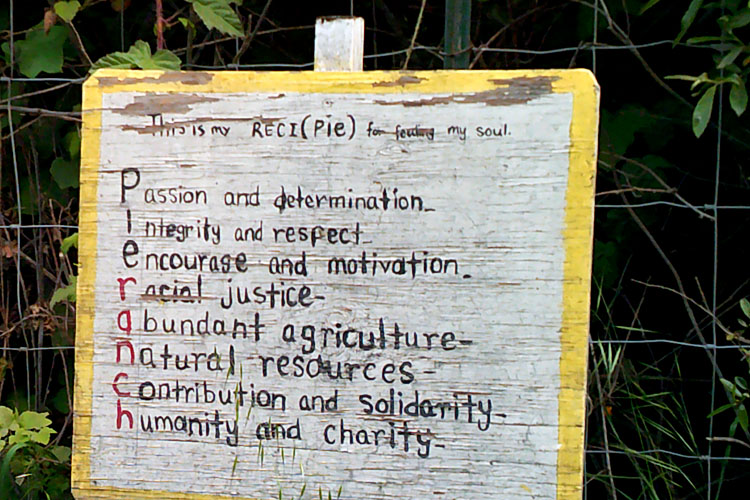 This is my RECI(Pie) for feeding my soul.
Passion and determination_
Integrity and respect_
encourage and motivation_
racial justice-
abundant agriculture-
natural resources-
contribution and solidarity-
humanity and charity-